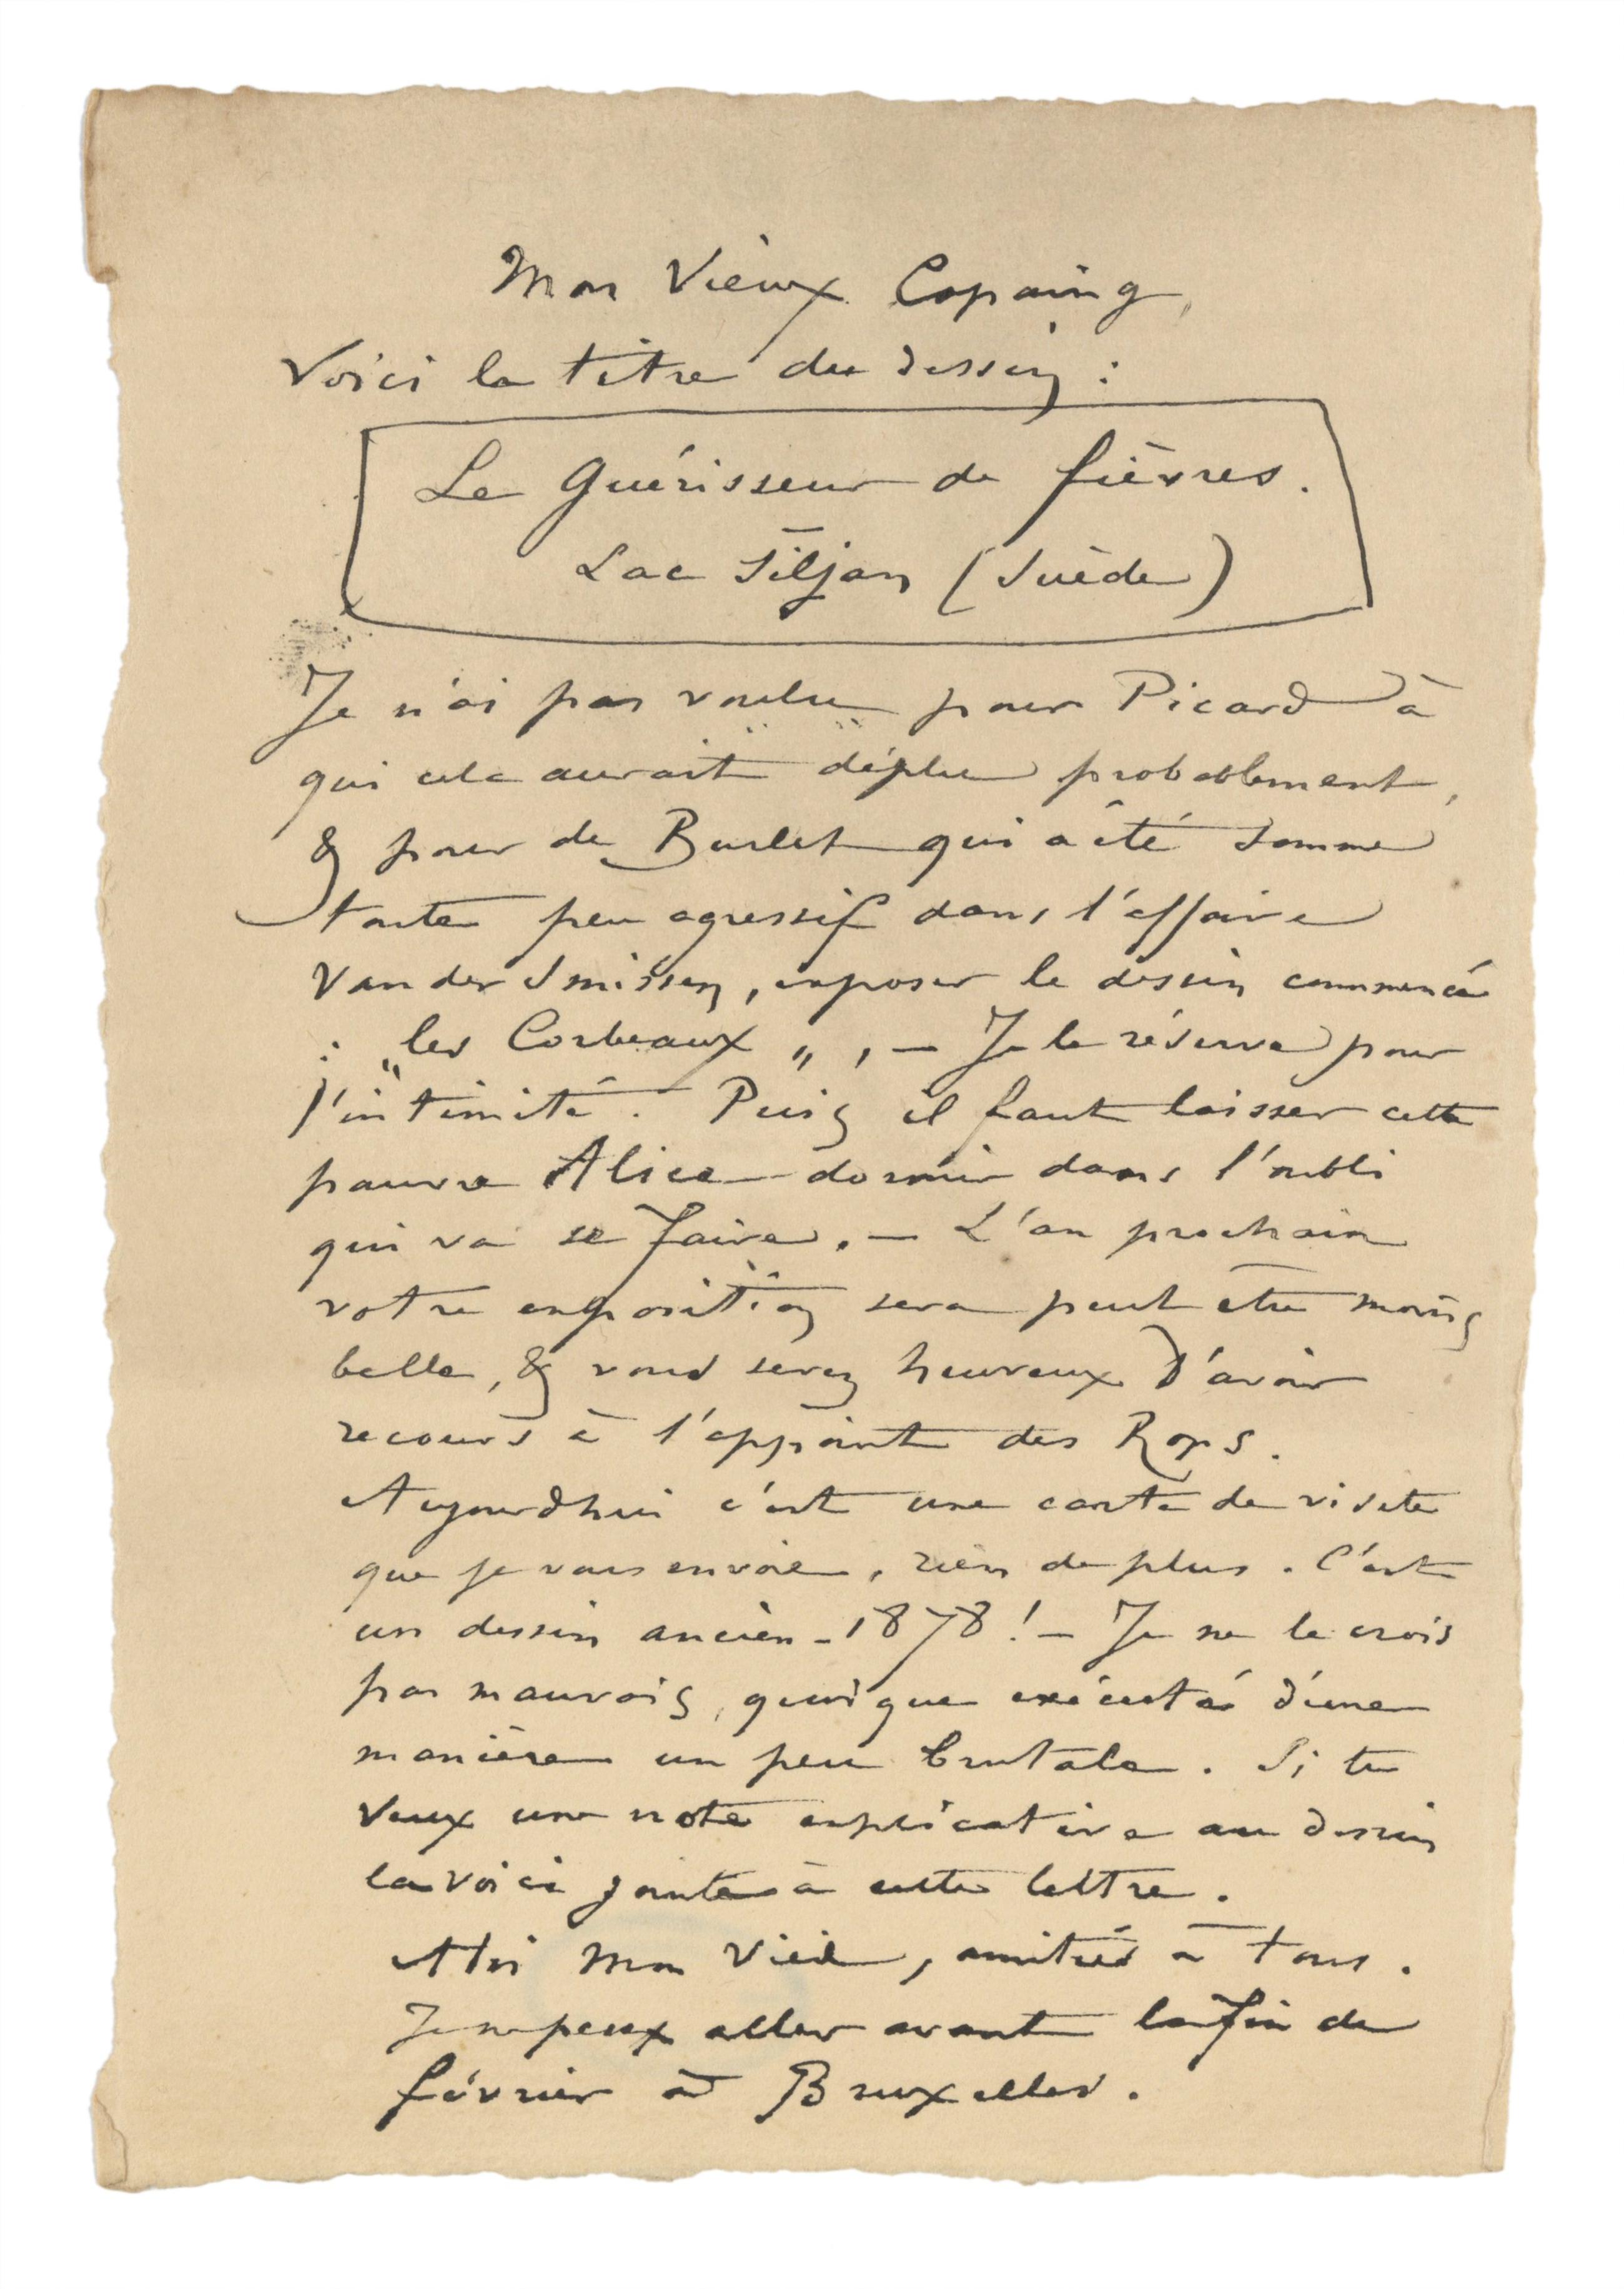 Mon Vieux Copaing,
Voici le titre du dessin :
Le Guérisseur de fièvres.
Lac Siljan (Suède)
Je n'ai pas voulu pour Picard à
qui cela aurait déplu probablement,
& pour de Burlet qui a été somme
toute peu agressif dans l'affaire
Vander Smissen, exposer le dessin commencé
: „les Corbeaux „, – Je le réserve pour
l'intimité. Puis il faut laisser cette
pauvre Alice dormir dans l'oubli
qui va se faire. – L'an prochain
votre exposition sera peut être moins
belle, & vous serez heureux d'avoir
recours à l'appoint des Rops.
Aujourdhui c'est une carte de visite
que je vous envoie, rien de plus. C'est
un dessin ancien – 1878 ! – Je ne le crois
pas mauvais, quoique exécuté d'une
manière un peu brutale. Si tu
veux une note explicative au dessin
la voici jointe à cette lettre.
A toi mon Vieil, amitiés à tous.
Je ne peux aller avant la fin de
février à Bruxelles.